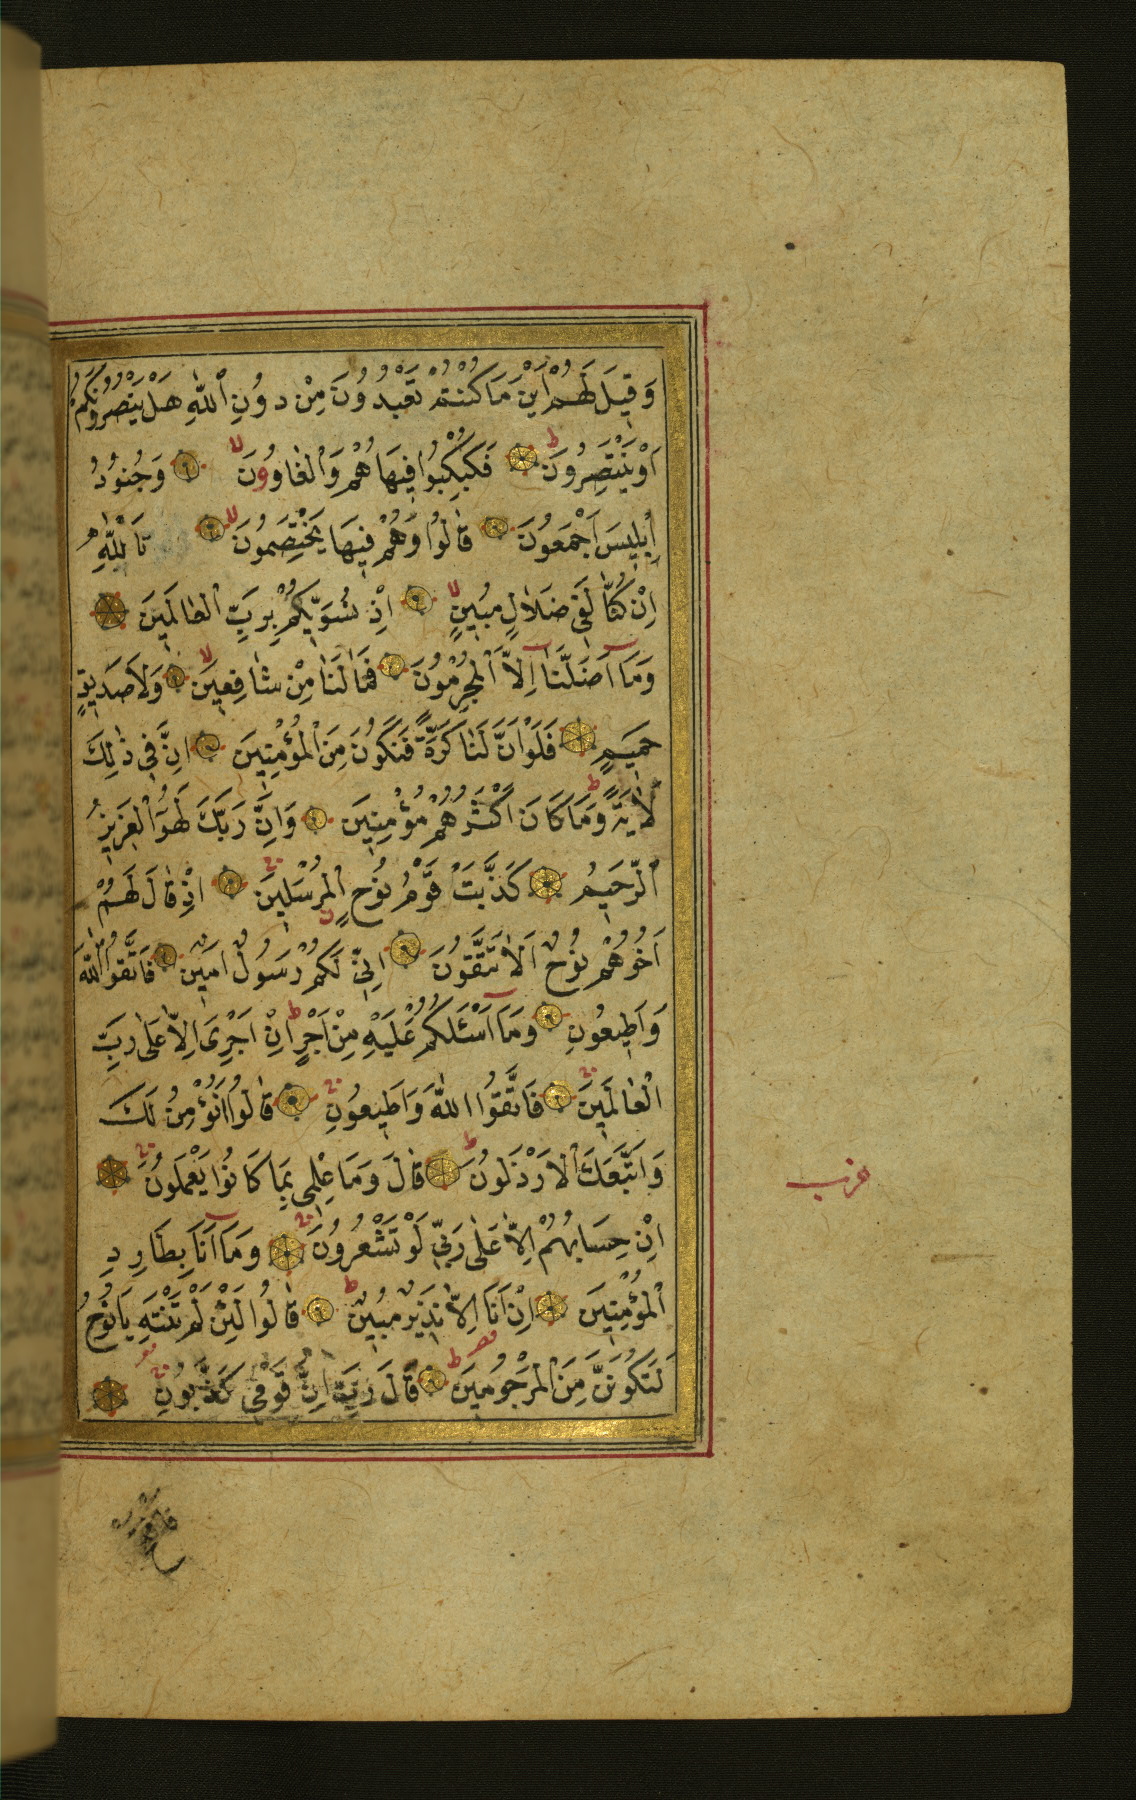 وَقِيلَ لَهُمْ اَيْنَ مَا كُنْتُمْ تَعْبُدُونَ مِنْ دُونِ اللّٰهِ هَلْ يَنْصُرُونَكُمْ
اَوْ يَنْتَصِرُونَ فَكُبْكِبُوا فِيهَا هُمْ وَالْغَاوُونَ وَجُنُودُ
اِبْلِيسَ اَجْمَعُونَ قَالُوا وَهُمْ فِيهَا يَخْتَصِمُونَ تَاللّٰهِ
اِنْ كُنَّا لَفِى ضَلَالٍ مُبِينٍ اِذْ نُسَوِّيكُمْ بِرَبِّ الْعَالَمِينَ
وَمَا اَضَلَّنَا اِلَّا الْمُجْرِمُونَ فَمَا لَنَا مِنْ شَافِعِينَ وَلَا صَدِيقٍ
حَمِيمٍ فَلَوْ اَنَّ لَنَا كَرَّةً فَنَكُونَ مِنَ الْمُؤْمِنِينَ اِنَّ فِى ذٰلِكَ
لَاٰيَةً وَمَا كَانَ اَكْثَرُهُمْ مُؤْمِنِينَ وَاِنَّ رَبَّكَ لَهُوَ الْعَزِيزُ
الرَّحِيمُ كَذَّبَتْ قَوْمُ نُوحٍ الْمُرْسَلِينَ اِذْ قَالَ لَهُمْ
اَخُوهُمْ نُوحٌ اَلَا تَتَّقُونَ اِنِّى لَكُمْ رَسُولٌ اَمِينٌ فَاتَّقُوا اللّٰهَ
وَاَطِيعُونِ وَمَا اَسْـَٔلُكُمْ عَلَيْهِ مِنْ اَجْرٍ اِنْ اَجْرِىَ اِلَّا عَلٰى رَبِّ
الْعَالَمِينَ فَاتَّقُوا اللّٰهَ وَاَطِيعُونِ قَالُوا اَنُؤْمِنُ لَكَ
وَاتَّبَعَكَ الْاَرْذَلُونَ قَالَ وَمَا عِلْمِى بِمَا كَانُوا يَعْمَلُونَ
اِنْ حِسَابُهُمْ اِلَّا عَلٰى رَبِّى لَوْ تَشْعُرُونَ وَمَا اَنَا بِطَارِدِ
الْمُؤْمِنِينَ اِنْ اَنَا اِلَّا نَذِيرٌ مُبِينٌ قَالُوا لَئِنْ لَمْ تَنْتَهِ يَا نُوحُ
لَتَكُونَنَّ مِنَ الْمَرْجُومِينَ قَالَ رَبِّ اِنَّ قَوْمِى كَذَّبُونِ